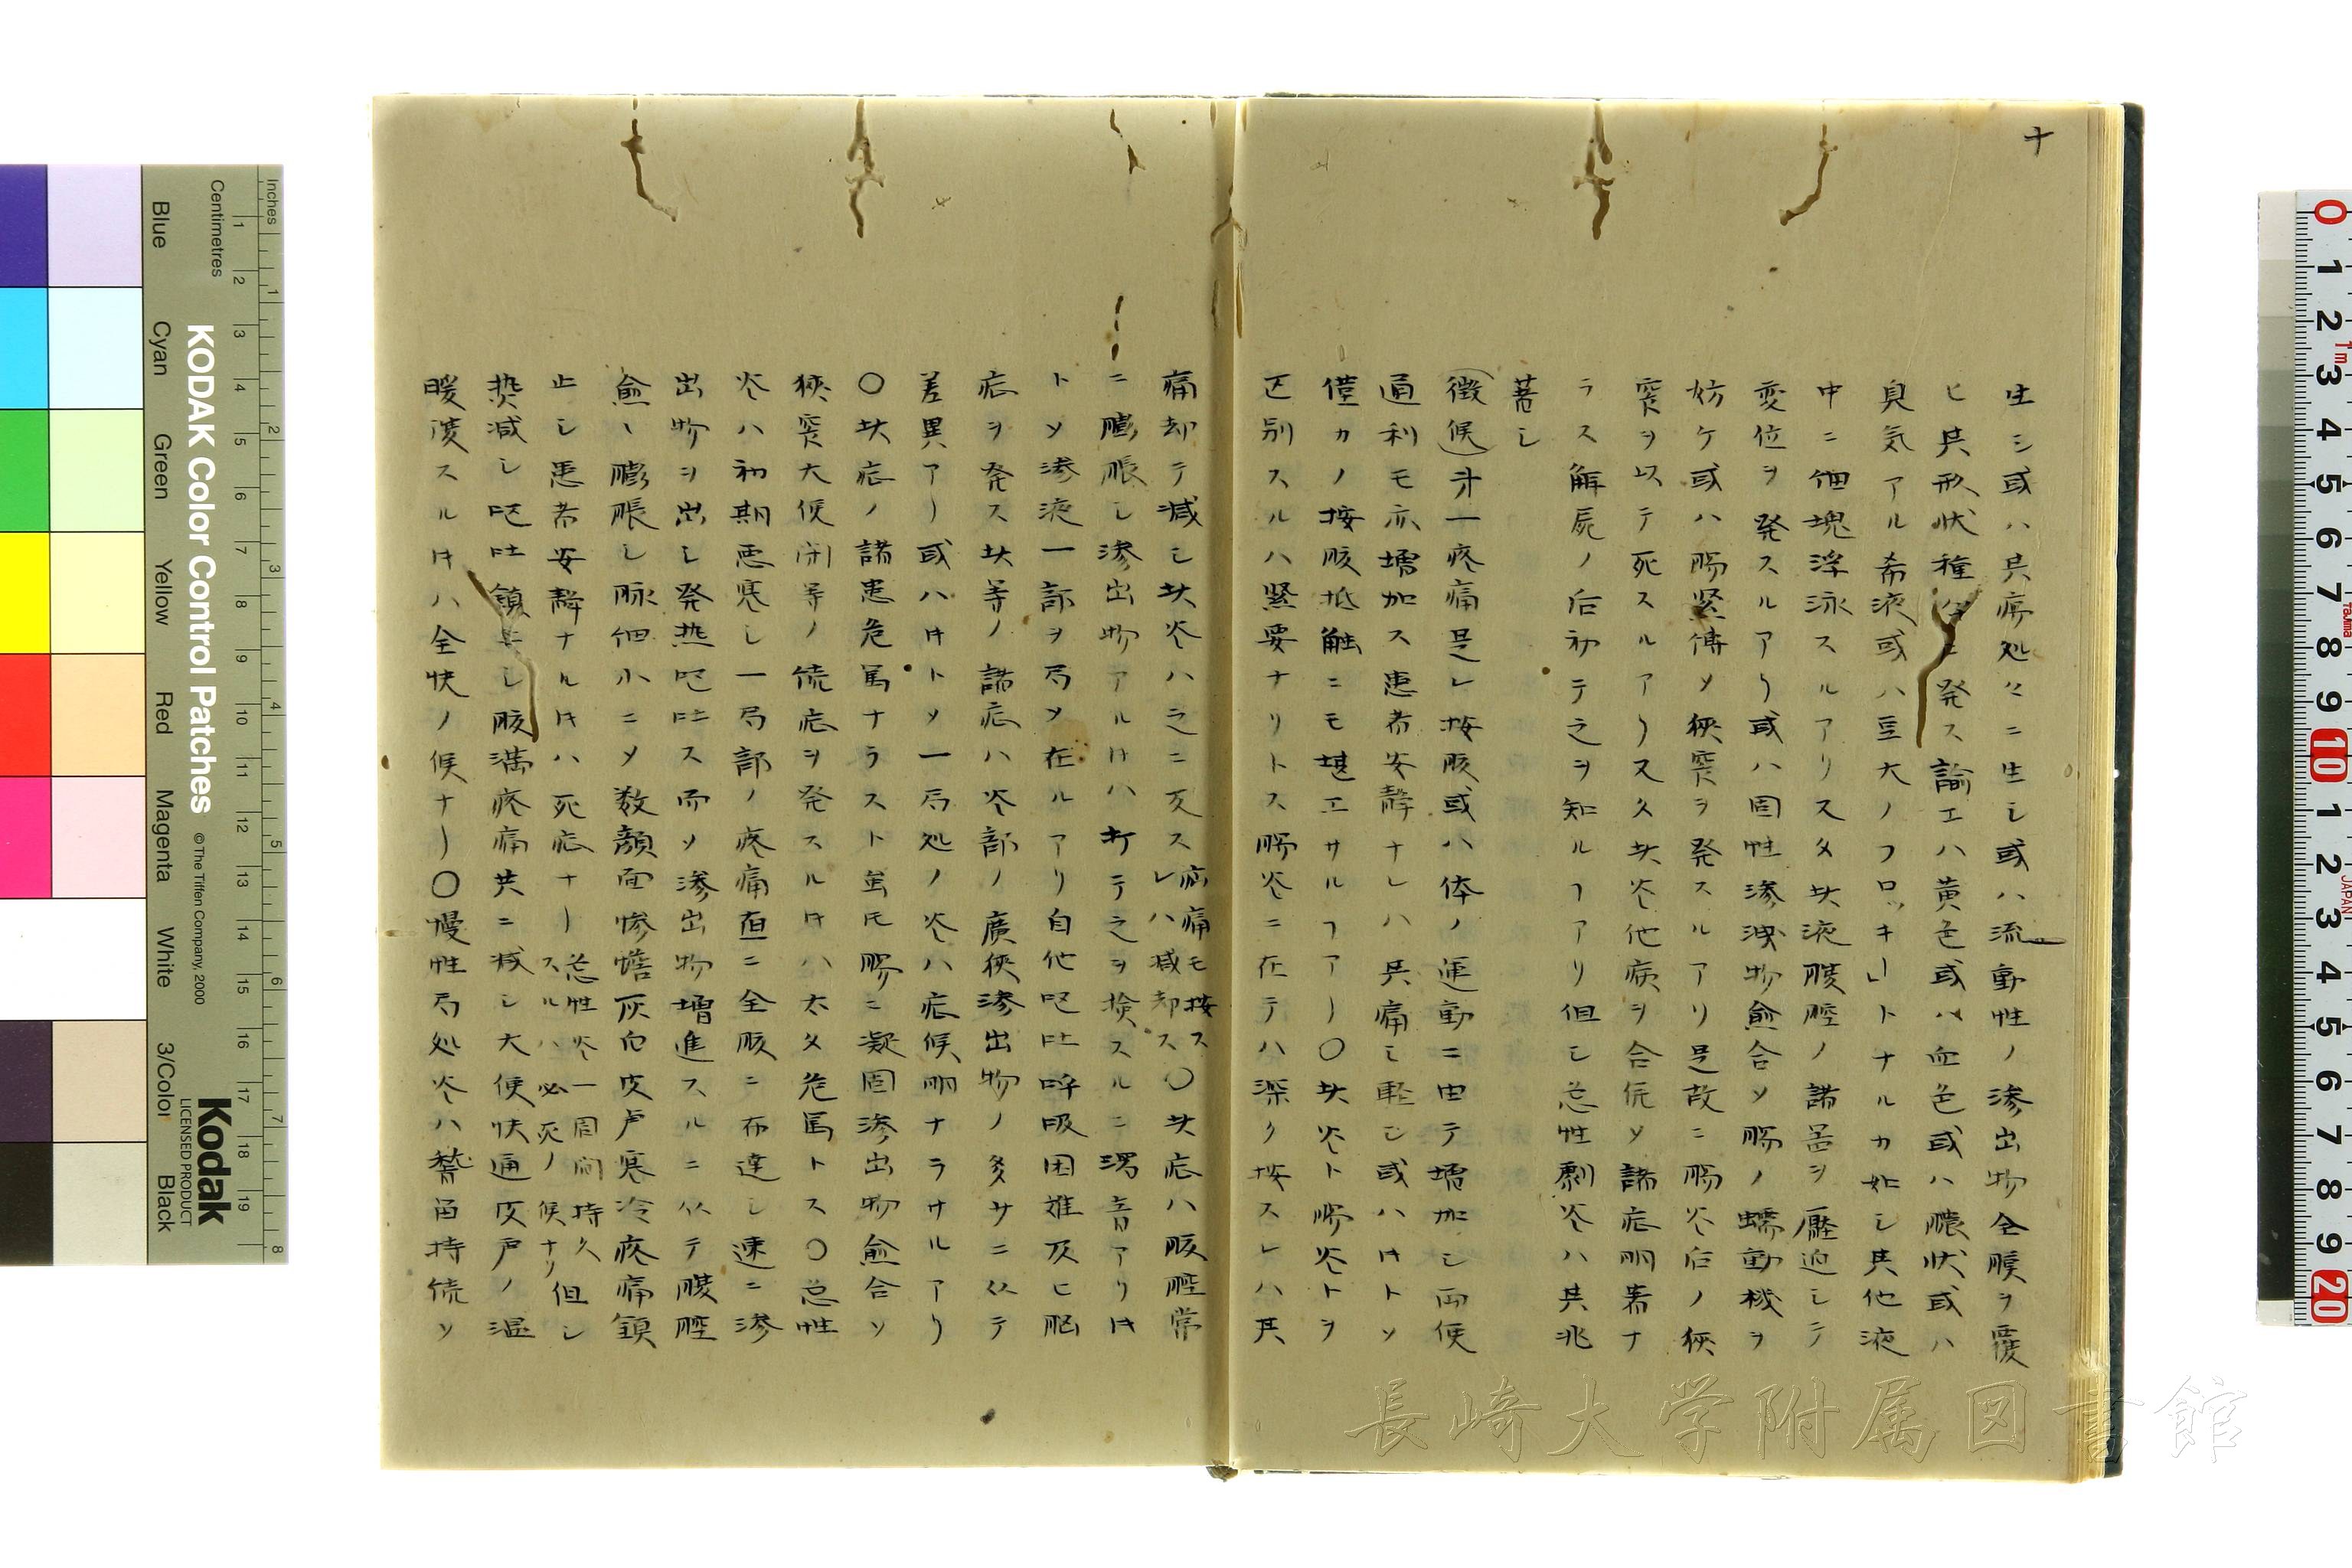 十
生シ或ハ其痛処々ニ生シ或ハ流動性ノ滲出物全膜ヲ覆
ヒ其形状種々ニ発ス諭エハ黄色或ハ血色或ハ膿状或ハ
臭気アル希液或ハ豆大ノフロッキートナルカ如シ其他液
中ニ細塊浮泳スルアリ又タ此液腹腔ノ諸器ヲ圧迫シテ
変位ヲ発スルアリ或ハ固性滲泄物愈合ソ腸ノ蠕動機ヲ
妨ケ或ハ腸緊縛ソ狭窄ヲ発スルアリ是故ニ腸炎后ノ狭
窄ヲ以テ死スルアリ又タ此炎他病ヲ合併ソ諸症明著ナ
ラス解屍ノ后初テ之ヲ知ルヿアリ但シ急性劇炎ハ其兆
著シ
徴候 第一疼痛是レ按腹或ハ体ノ運動ニ由テ増加シ両便
通利モ亦増加ス患者安静ナレハ其痛ミ軽シ或ハ時トソ
僅カノ按腹抵触ニモ堪エサルヿアリ〇此炎ト腸炎トヲ
区別スルハ緊要ナリトス腸炎ニ在テハ深ク按スレハ其
痛却テ減シ此炎ハ之ニ反ス 疝痛モ按スレハ減却ス〇此症ハ腹腔常
ニ膨脹シ滲出物アル時ハ打テ之ヲ検スルニ濁音アリ時
トソ滲液一部ヲ局ソ在ルアリ自他吐吃呼吸困難及ヒ脳
症ヲ発ス此等ノ諸症ハ炎部ノ廣狭滲出物ノ多少ニ从テ
差異アリ或ハ時トソ一局処ノ炎ハ症候明ナラサルアリ
〇此症ノ諸患危篤ナラスト虽モ腸ニ凝固滲出物愈合ソ
狭窄大便閉等ノ続症ヲ発スル時ハ太タ危篤トス〇急性
炎ハ初期悪寒シ一局部ノ疼痛直ニ全腹ニ布達シ速ニ滲
出物ヲ出シ発熱吃吐ス而ソ滲出物増進スルニ从テ腹腔
愈々膨脹シ脉細小ニソ数顔面惨憺灰白皮膚寒冷疼痛鎮
止シ患者安静ナル時ハ死症ナリ 急性炎一周間持久スルハ必死ノ候ナリ 但シ
熱減シ吃吐鎮止シ腹満疼痛共ニ減シ大便快通皮戸ノ温
暖復スル時ハ全快ノ候ナリ〇慢性局処炎ハ持続ソ
Centimetres
Inches
KODAK Color Control Patches
© The Tiffen Company, 2000
Kodak
LICENSED PRODUCT
Blue Cyan Green Yellow Red Magenta White 3/Color Black
1 2 3 4 5 6 7 8 9 10 11 12 13 14 15 16 17 18 19
1 2 3 4 5 6 7 8
0 1 2 3 4 5 6 7 8 9 10 1 2 3 4 5 6 7 8 9 20
JAPAN
長崎大学附属図書館